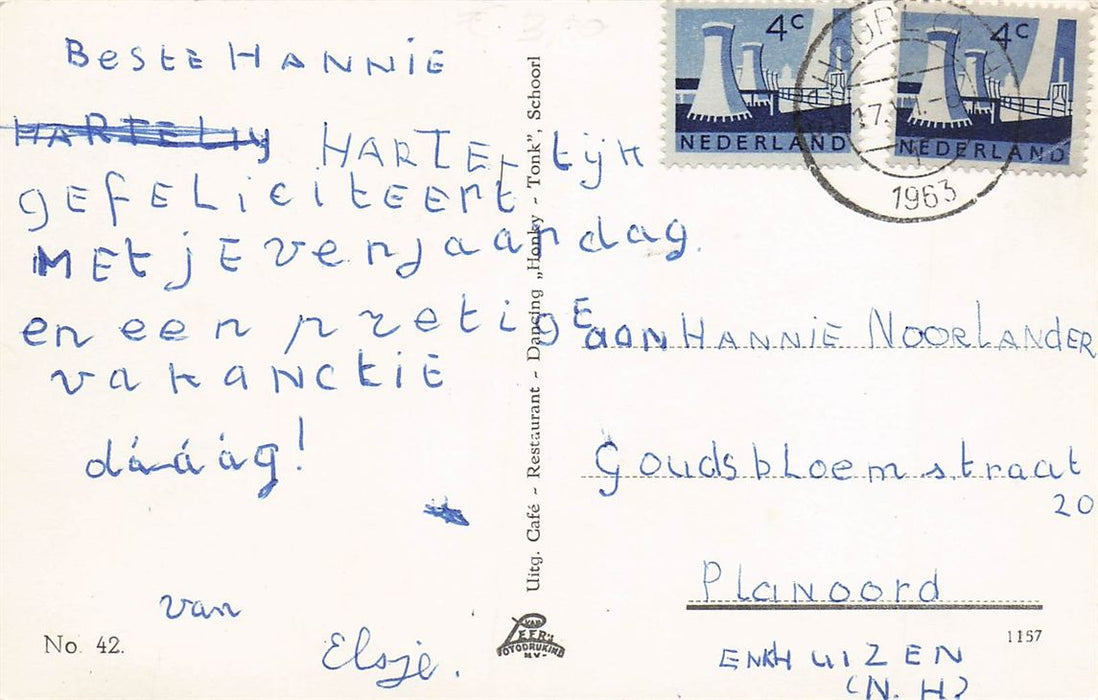 BESTE HANNIE
HARTELIJ HARTE_lijk
gEFELiciteert
MEt jE verjaardag.
en een prETigE
vakANctiE
dááág!
van
Elsje.
No. 42.
Uitg. Café - Restaurant - Dancing „Honky - Tonk”, Schoorl
VAN
LEER'S
FOTODRUKIND.
N.V.
4c
NEDERLAND
4c
NEDERLAND
1963
aan HANNIE NOORLANDER
Goudsbloemstraat
20
Planoord
1157
ENKHUIZEN
(N.H)